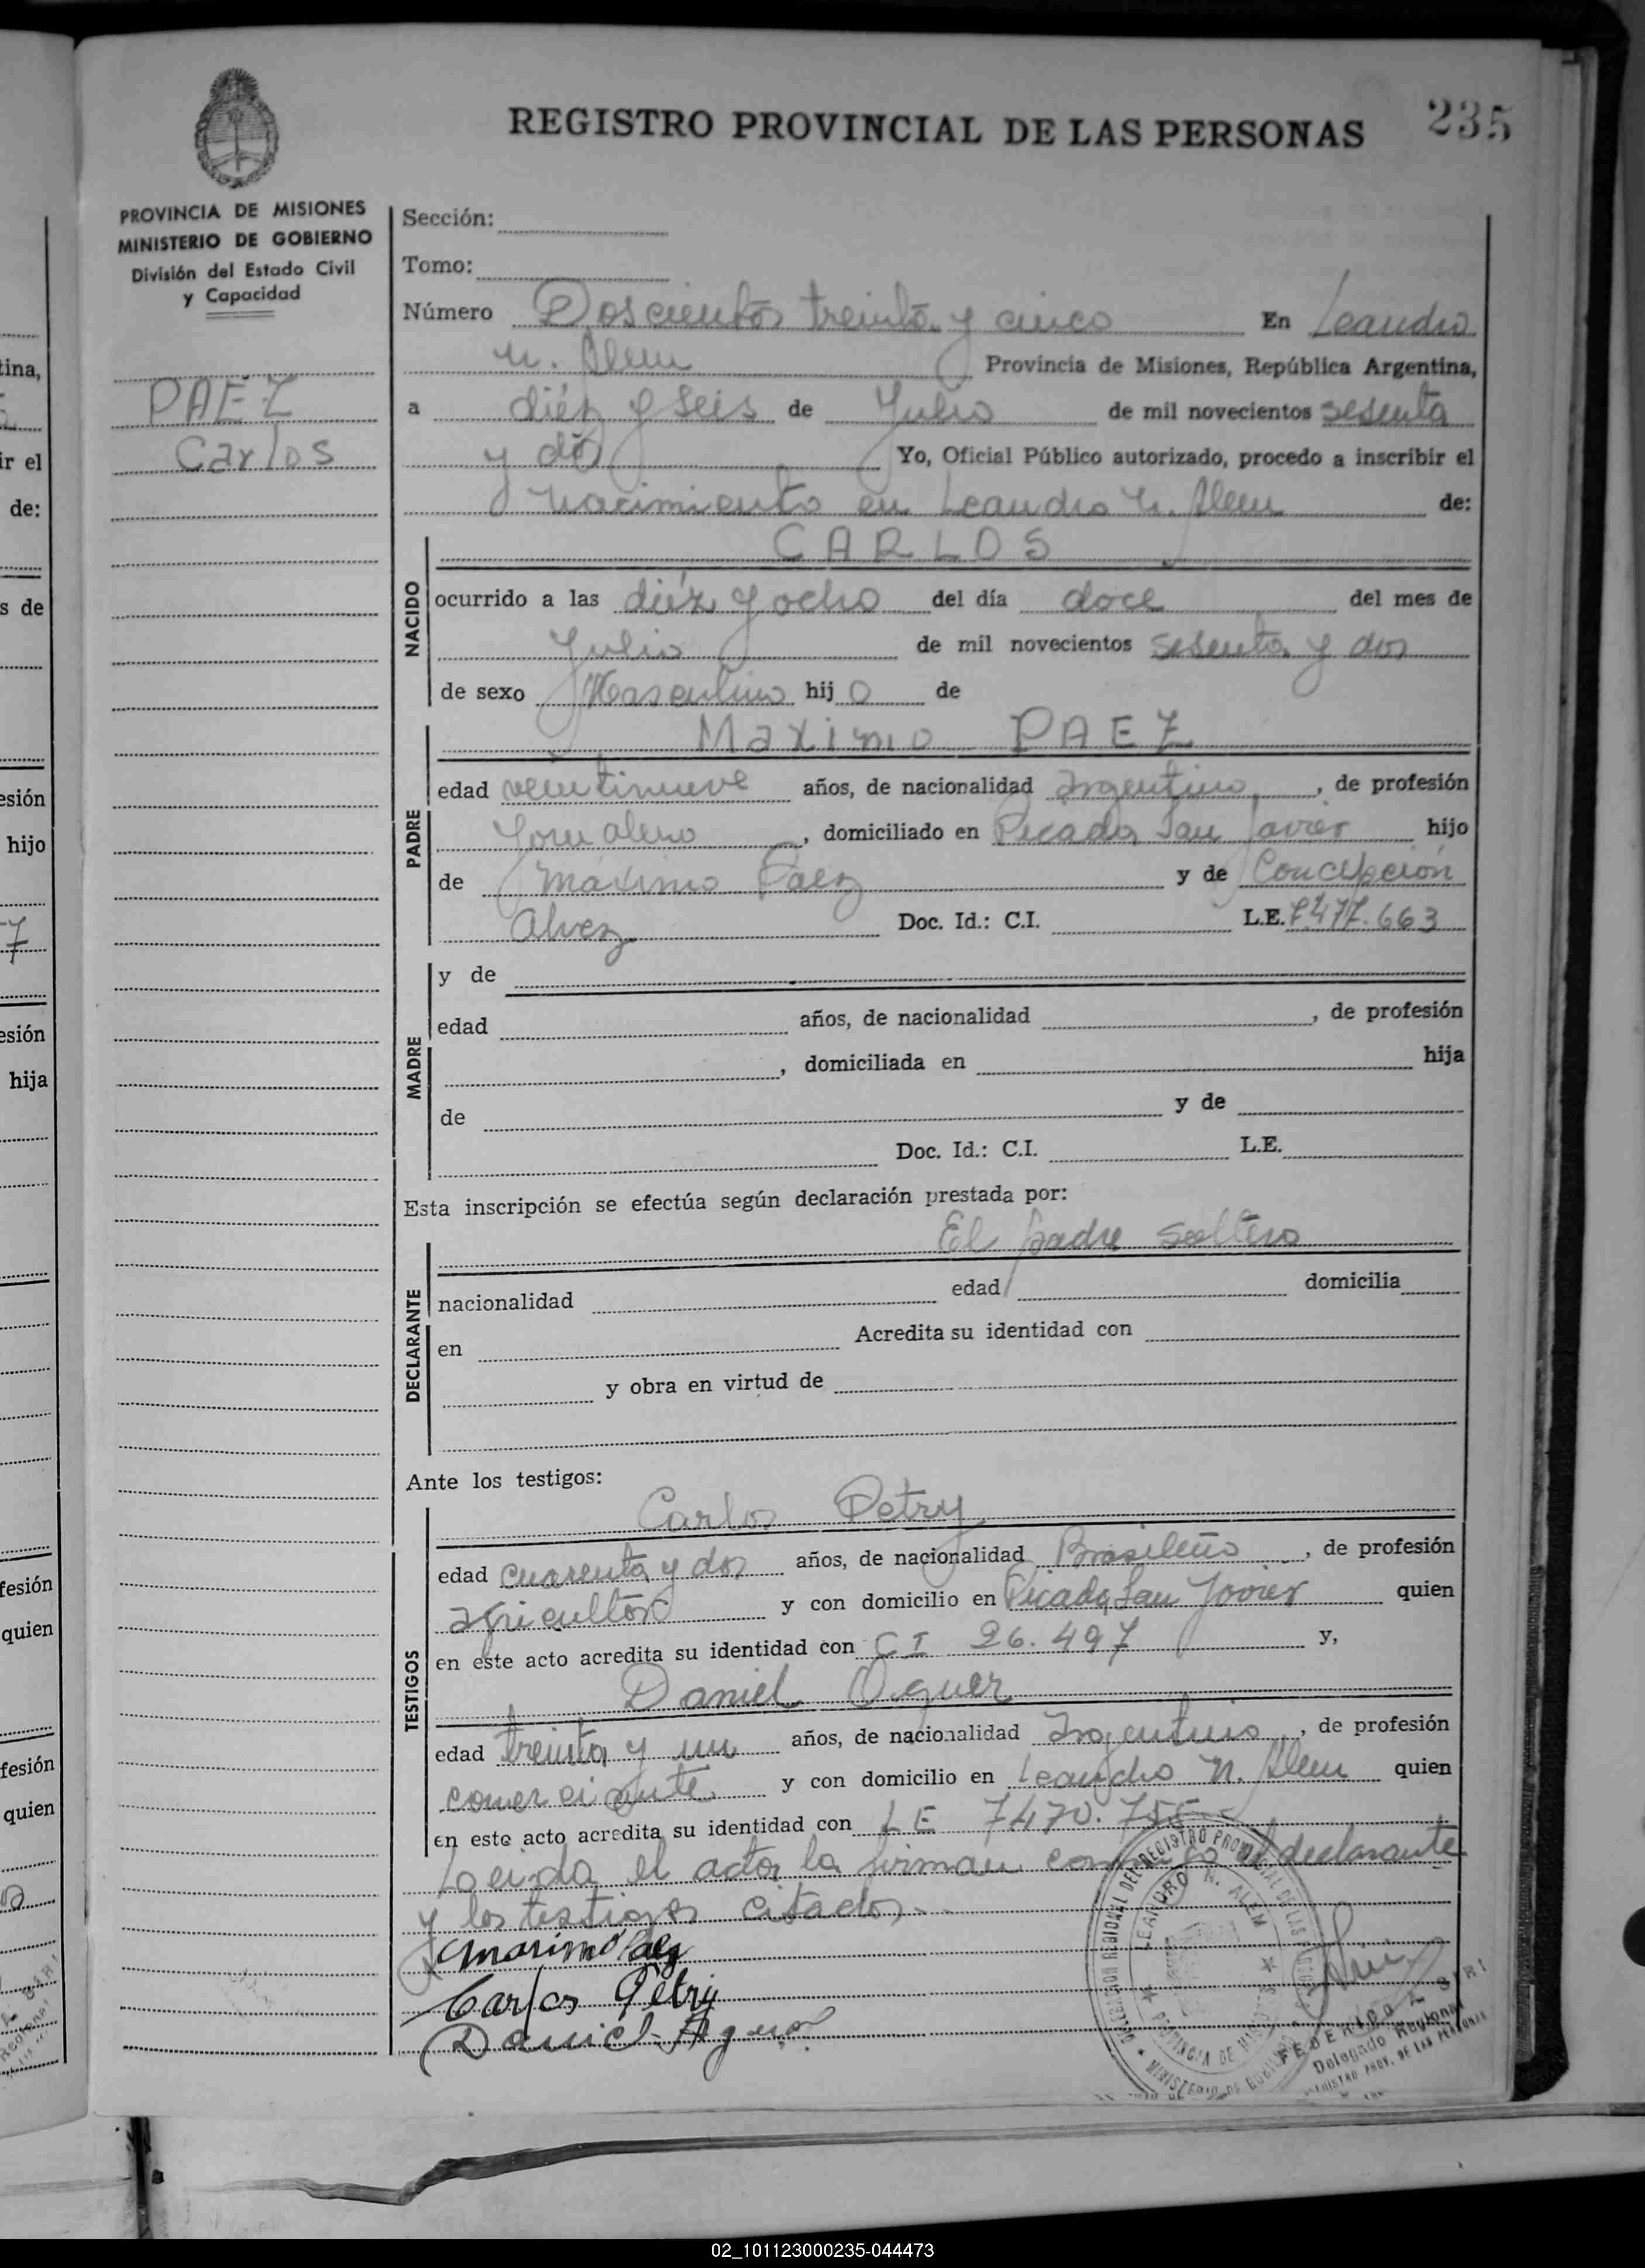 REGISTRO PROVINCIAL DE LAS PERSONAS 235
PROVINCIA DE MISIONES
MINISTERIO DE GOBIERNO
División del Estado Civil
y Capacidad
PAEZ
Carlos
Sección:
Tomo:
Número Doscientos treinta y cinco En Leandro
N. Alem Provincia de Misiones, República Argentina,
a diéz y seis de Julio de mil novecientos sesenta
y dos Yo, Oficial Público autorizado, procedo a inscribir el
Nacimiento en Leandro N. Alem de:
NACIDO
CARLOS
ocurrido a las diéz y ocho del día doce del mes de
Julio de mil novecientos sesenta y dos
de sexo Masculino hijo de
PADRE
Maximo PAEZ
edad veintinueve años, de nacionalidad Argentino, de profesión
Jornalero, domiciliado en Picada San Javier hijo
de Maximo Paez y de Concepción
Alvez Doc. Id.: C.I. L.E. 7.477.663
MADRE
y de
edad años, de nacionalidad , de profesión
, domiciliada en hija
de y de
Doc. Id.: C.I. L.E.
Esta inscripción se efectúa según declaración prestada por:
DECLARANTE
El padre soltero
nacionalidad edad domicilia
en Acredita su identidad con
y obra en virtud de
Ante los testigos:
TESTIGOS
Carlos Petry
edad cuarenta y dos años, de nacionalidad Brasileño, de profesión
agricultor y con domicilio en Picada San Javier quien
en este acto acredita su identidad con CI 26.497 y,
Daniel Oguer
edad treinta y un años, de nacionalidad Argentino, de profesión
comerciante y con domicilio en Leandro N. Alem quien
en este acto acredita su identidad con LE 7470.755
Leida el acta la firman conmigo el declarante
y los testigos citados.-
Maximo Paez
Carlos Petry
Daniel
DELEGACION REGIONAL DEL REGISTRO PROVINCIAL DE LAS
LEANDRO N. ALEM
PROVINCIA DE MISIONES
MINISTERIO DE GOBIERNO
FEDERICO A.
Delegado Regional
REGISTRO PROV. DE LAS PERSONAS
02_101123000235-044473